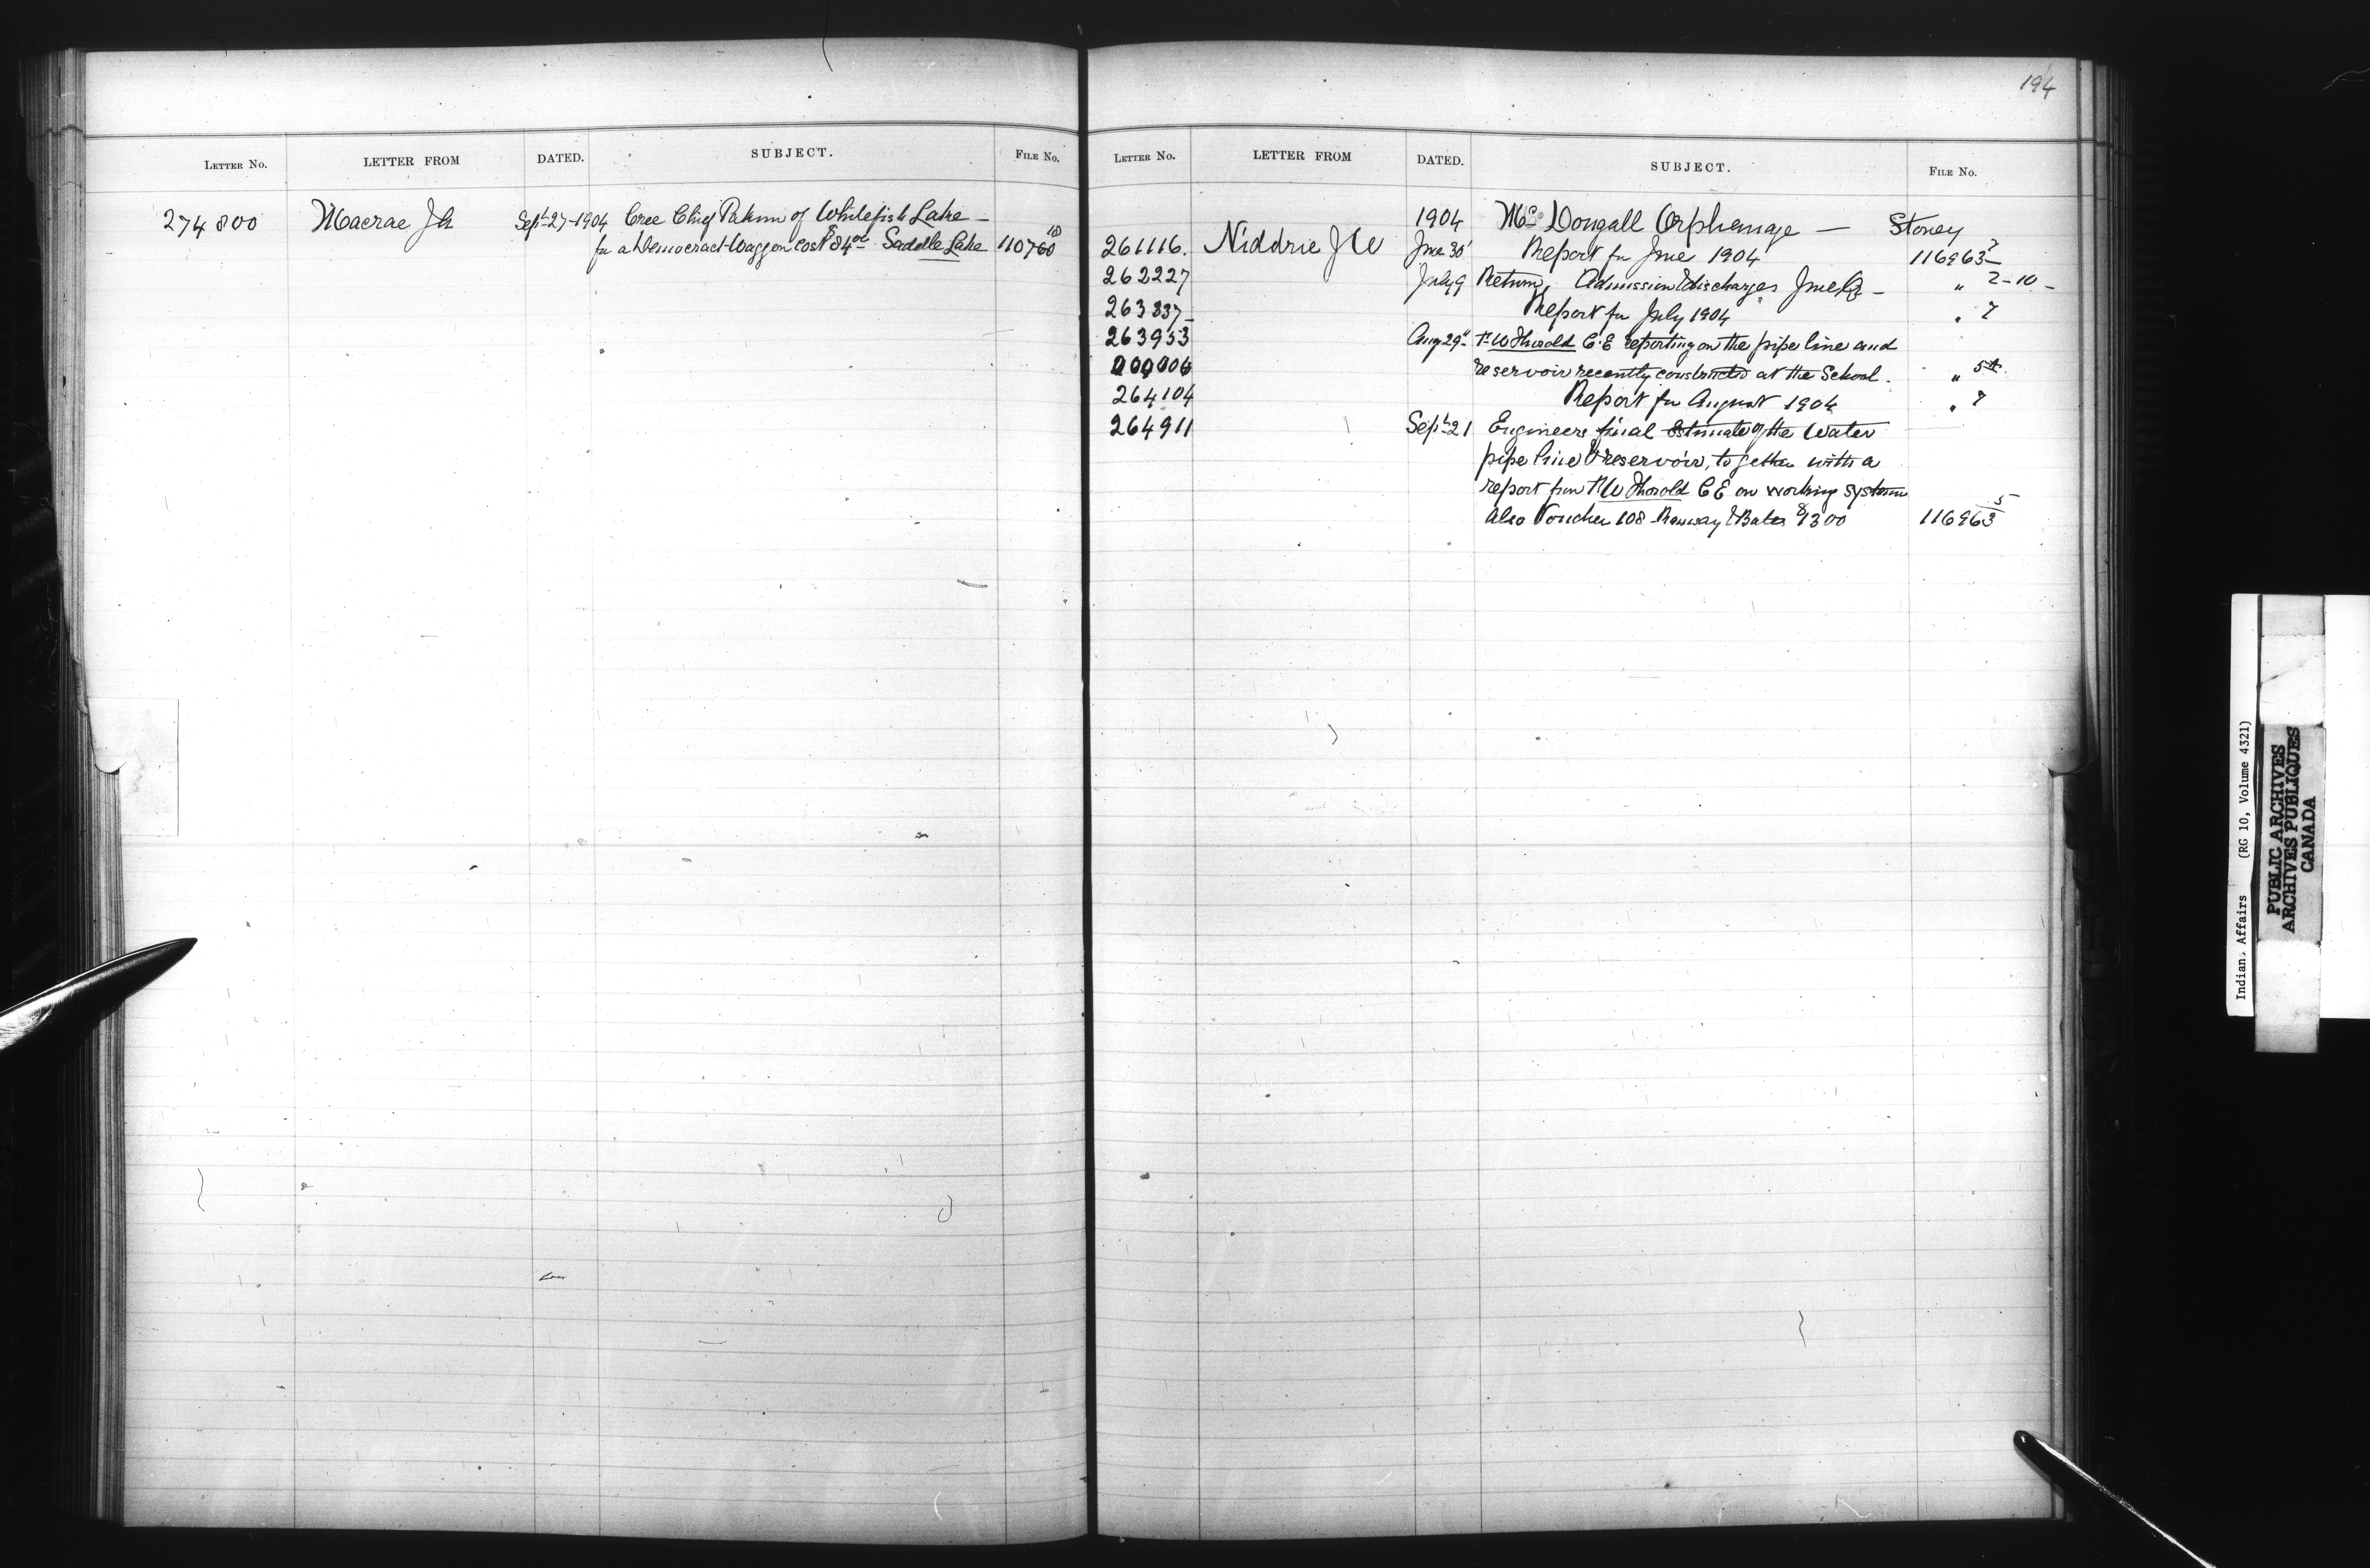 194
LETTER NO. LETTER FROM DATED. SUBJECT. FILE NO.
274800 Macrae J A Sept 27-1904 Cree Chief Pakan of Whitefish Lake -
for a Democrat Waggon cost $84 00 Saddle Lake 110760 10
LETTER NO. LETTER FROM DATED. SUBJECT. FILE NO.
1904 McDougall Orphanage — Stoney
261116. Niddrie J W June 30 Report for June 1904 116963 7
262227 July 9 Return, Admission & discharges June Qr - " 2-10 -
263837 - Report for July 1904 " 7
263953 Aug 29" Thorold C.E reporting on the pipe line and
reservoir recently constructed at the School. " 5
264104 Report for August 1904 " 7
264911 Sept 21 Engineers final Estimate of the Water
pipe line & reservoir, together with a
report from Thorold C E on working system
Also Voucher 108 & Bates $1300 116963 5
Indian Affairs (RG 10, Volume 4321)
PUBLIC ARCHIVES
ARCHIVES PUBLIQUES
CANADA